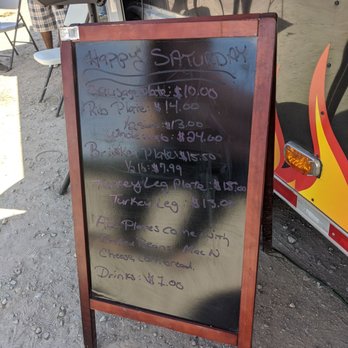 Happy SATURDAY
Sausage Plate: $10.00
Rib Plate: $14.00
$13.00
Whole $24.00
Brisket Plate: $15.50
1/2 lb: $7.99
Turkey Leg Plate: $15.00
Turkey Leg: $13.00
All Plates come with
Beans, Mac N
Cheese, Cornbread,
Drinks: $1.00